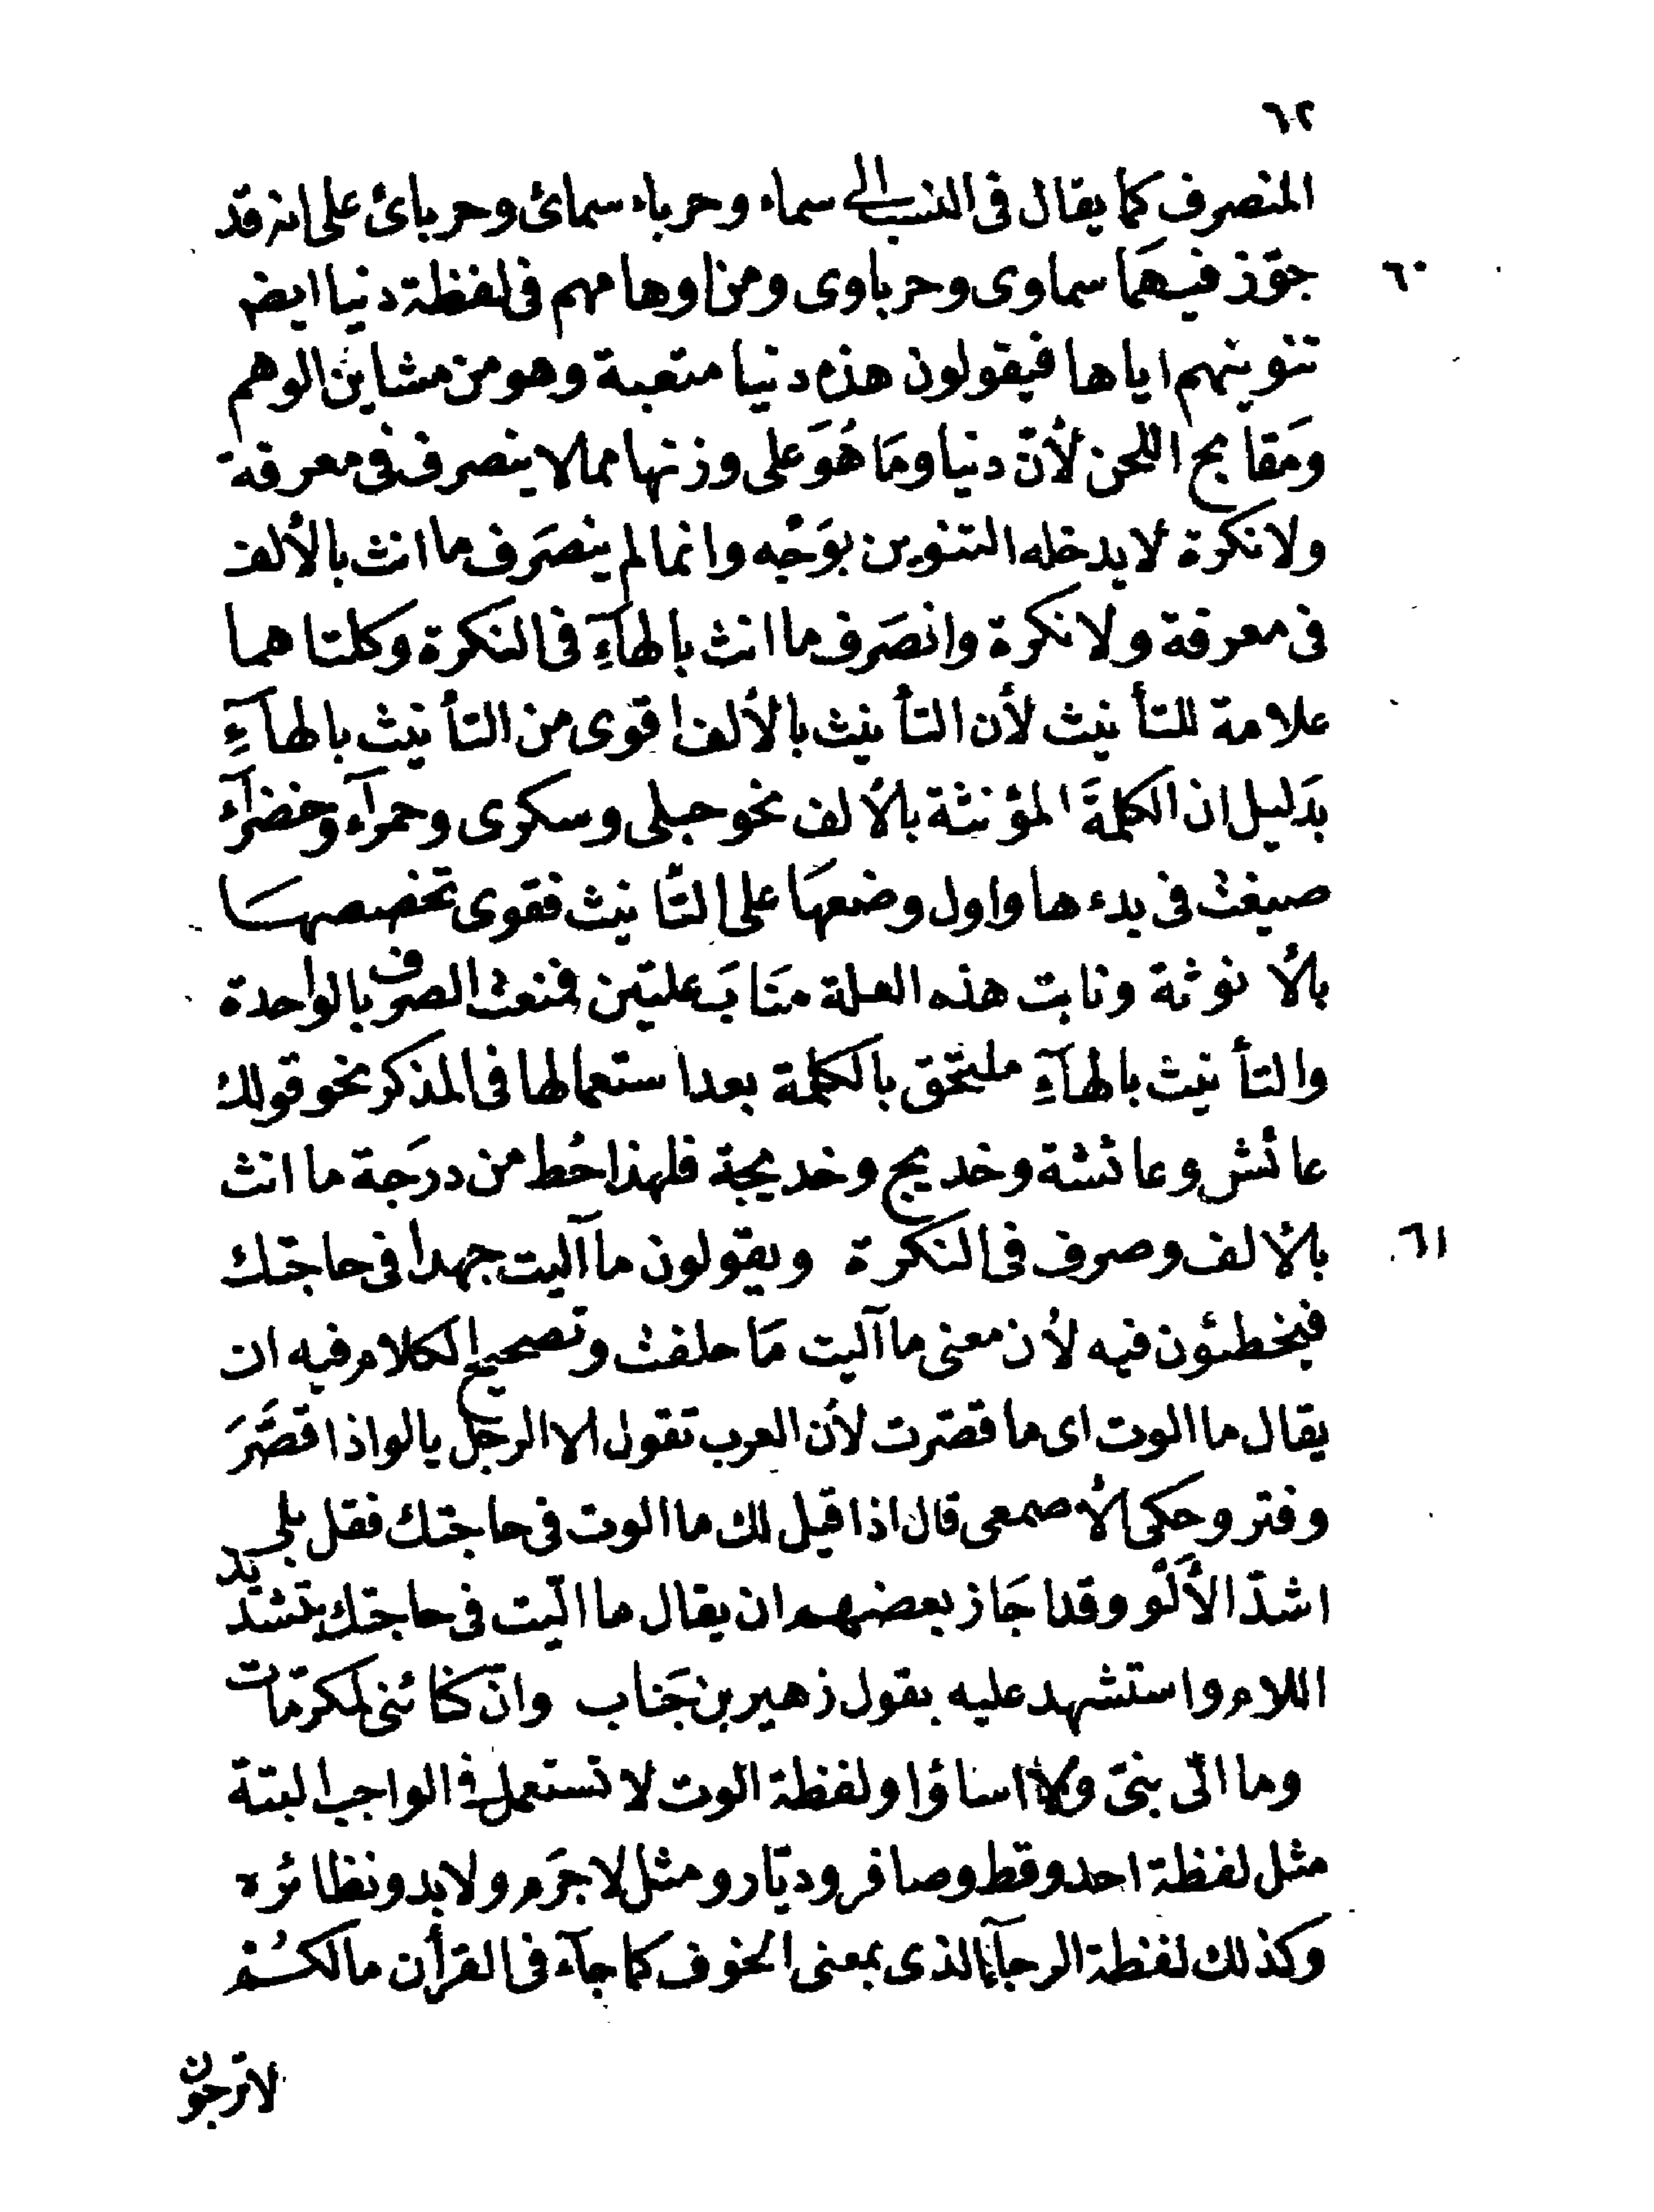 ٦٢
المنصرف كما يقال فى النسب الى سماء وحرباء سمائى وحربائى على انه قد
٦٠ جوّز فيهَما سماوى وحرباوى ومن اوهامهم فى لفظة دنيا ايضا
تنوينهم اياها فيقولون هذه دنيا متعبة وهو من مشاين الوهم
ومَقابح اللحن لأنّ دنيا ومَا هُوَ على وزنها مما لا ينصرف فى معرفة
ولا نكرة لا يدخله التنوين بوَجْه وانما لم ينصَرف ما انث بالألف
فى معرفة ولا نكرة وانصَرف ما انث بالهآءِ فى النكرة وكلتاهما
علامة للتأنيث لأن التأنيث بالألف اقوى من التأنيث بالهآءِ
بدَليل ان الكلمةَ المؤنثة بالألف نحو حبلى وسكرى وحمرآء وخضرآء
صيغت فى بدءها واول وضعهَا على التأنيث فقوى تخصصهسَا
بالأنوثة ونابت هذه العلة منَابَ علتين فمنعت الصرف بالواحدة
والتأنيث بالهآءِ ملتحق بالكلمة بعد استعمالها فى المذكر نحو قولك
عائش وعائشة وخديج وخديجة فلهذا حُط من درجَة ما انث
٦١ بالألف وصرف فى النكرة ويقولون ما آليت جهدا فى حاجتك
فيخطئون فيه لأن معنى ما آليت مَا حلفت وتصحيح الكلام فيه ان
يقال ما الوت اى ما قصّرت لأن العرب تقول الا الرجل يالو اذا قصَّرَ
وفتر وحكى الأصمعى قال اذا قيل لك ما الوت فى حاجتك فقل بلى
اشدّ الأَلْو وقد اجَاز بعضهم ان يقال ما الّيت فى حاجتك بتشديد
اللام واستشهد عليه بقول زهير بن جَناب وانّ كنائنى لمكرّمات
وما الّى بنىّ ولا اساؤا ولفظة الوت لا تستعمل فى الواجب البتة
مثل لفظة احد وقط وصافر وديّار ومثل لا جرَم ولا بد ونظائره
وكذلك لفظة الرجآء الذى بمعنى الخوف كما جآء فى القرأن مالكُم
لا ترجون